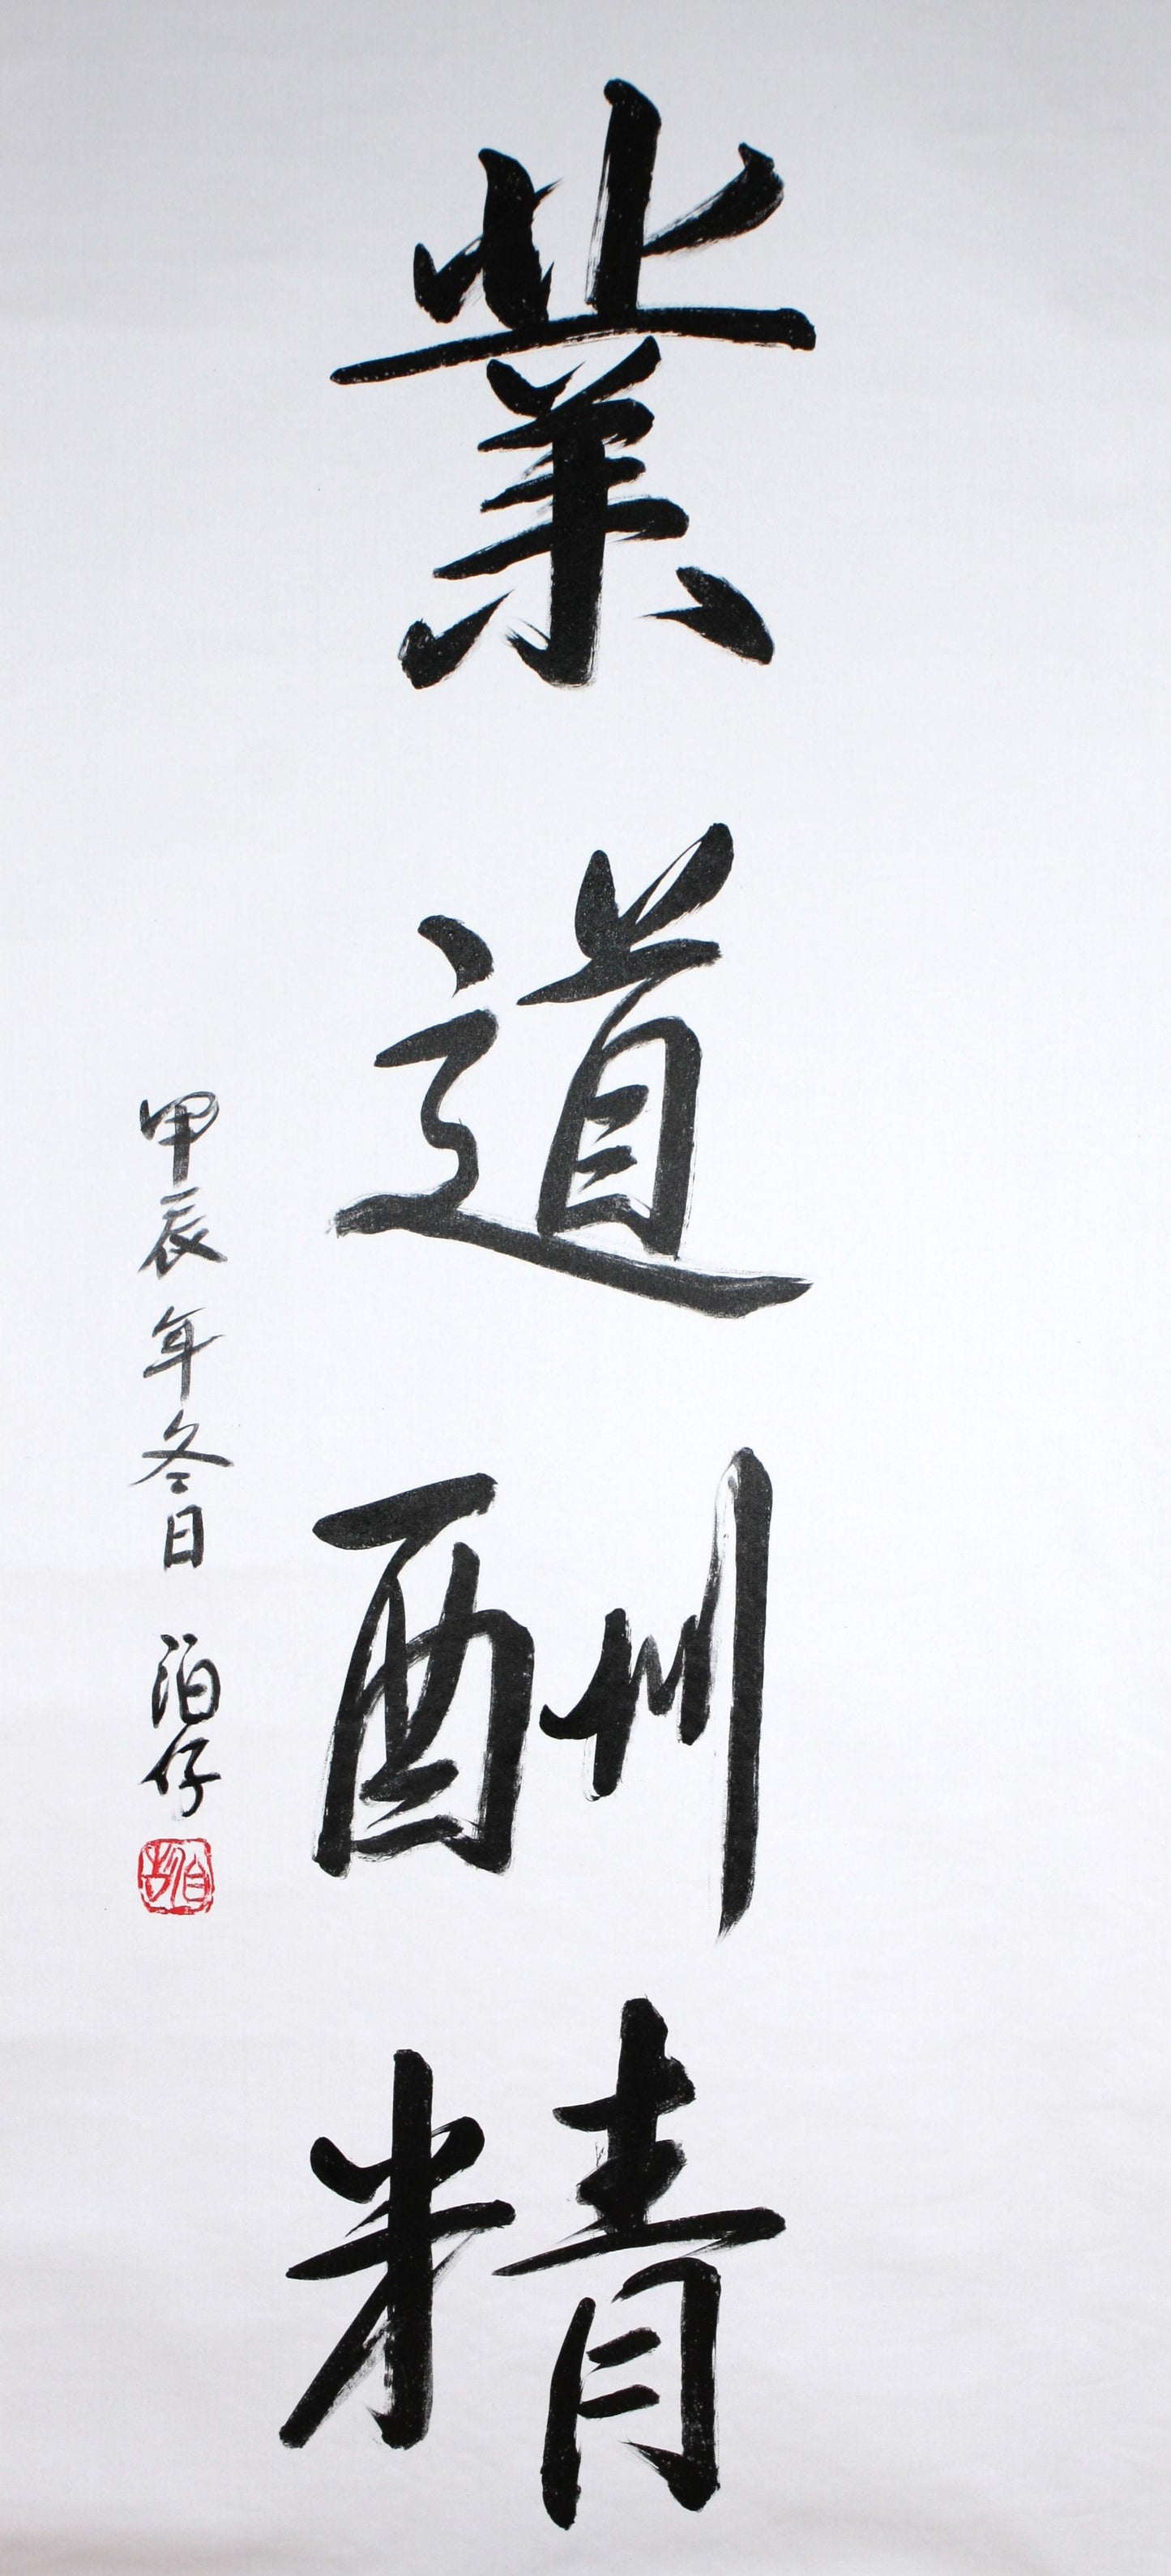 業道酬精
甲辰年冬日 泊仔